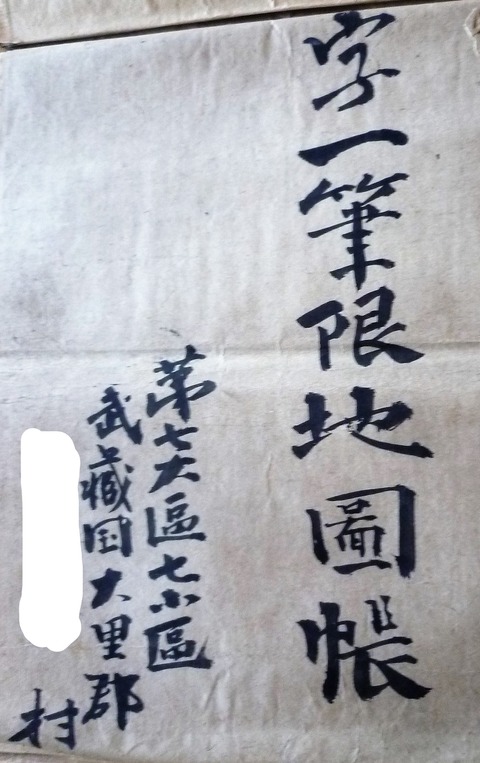 字一筆限地圖帳
第七大區七小區
武藏国大里郡
村